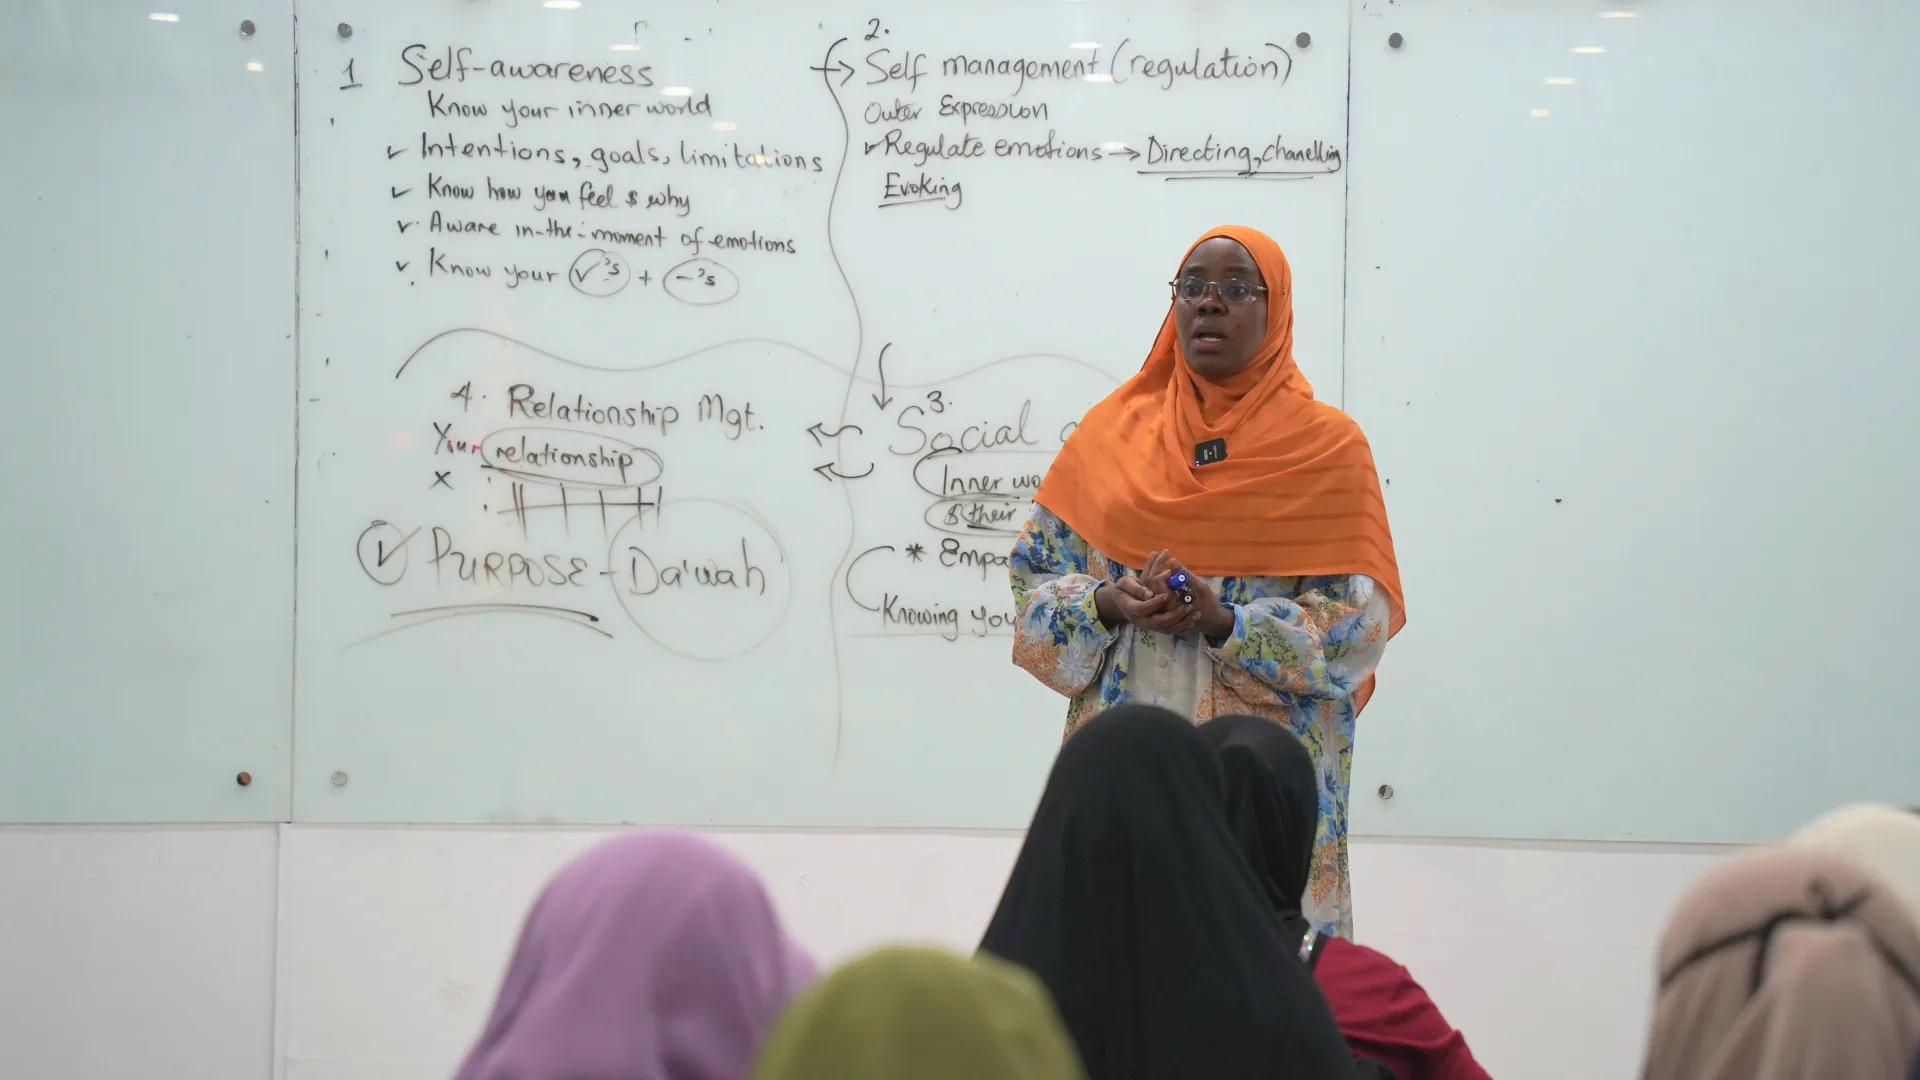 1 Self-awareness
Know your inner world
✓ Intentions, goals, limitations
✓ Know how you feel & why
✓ Aware in-the-moment of emotions
✓ Know your ✓'s + -'s
2.
Self management (regulation)
Outer Expression
✓ Regulate emotions → Directing, chanelling
Evoking
3.
Social
Inner wo
& their
* Empa
Knowing you
4. Relationship Mgt.
Your relationship
x
✓ PURPOSE - Da'wah